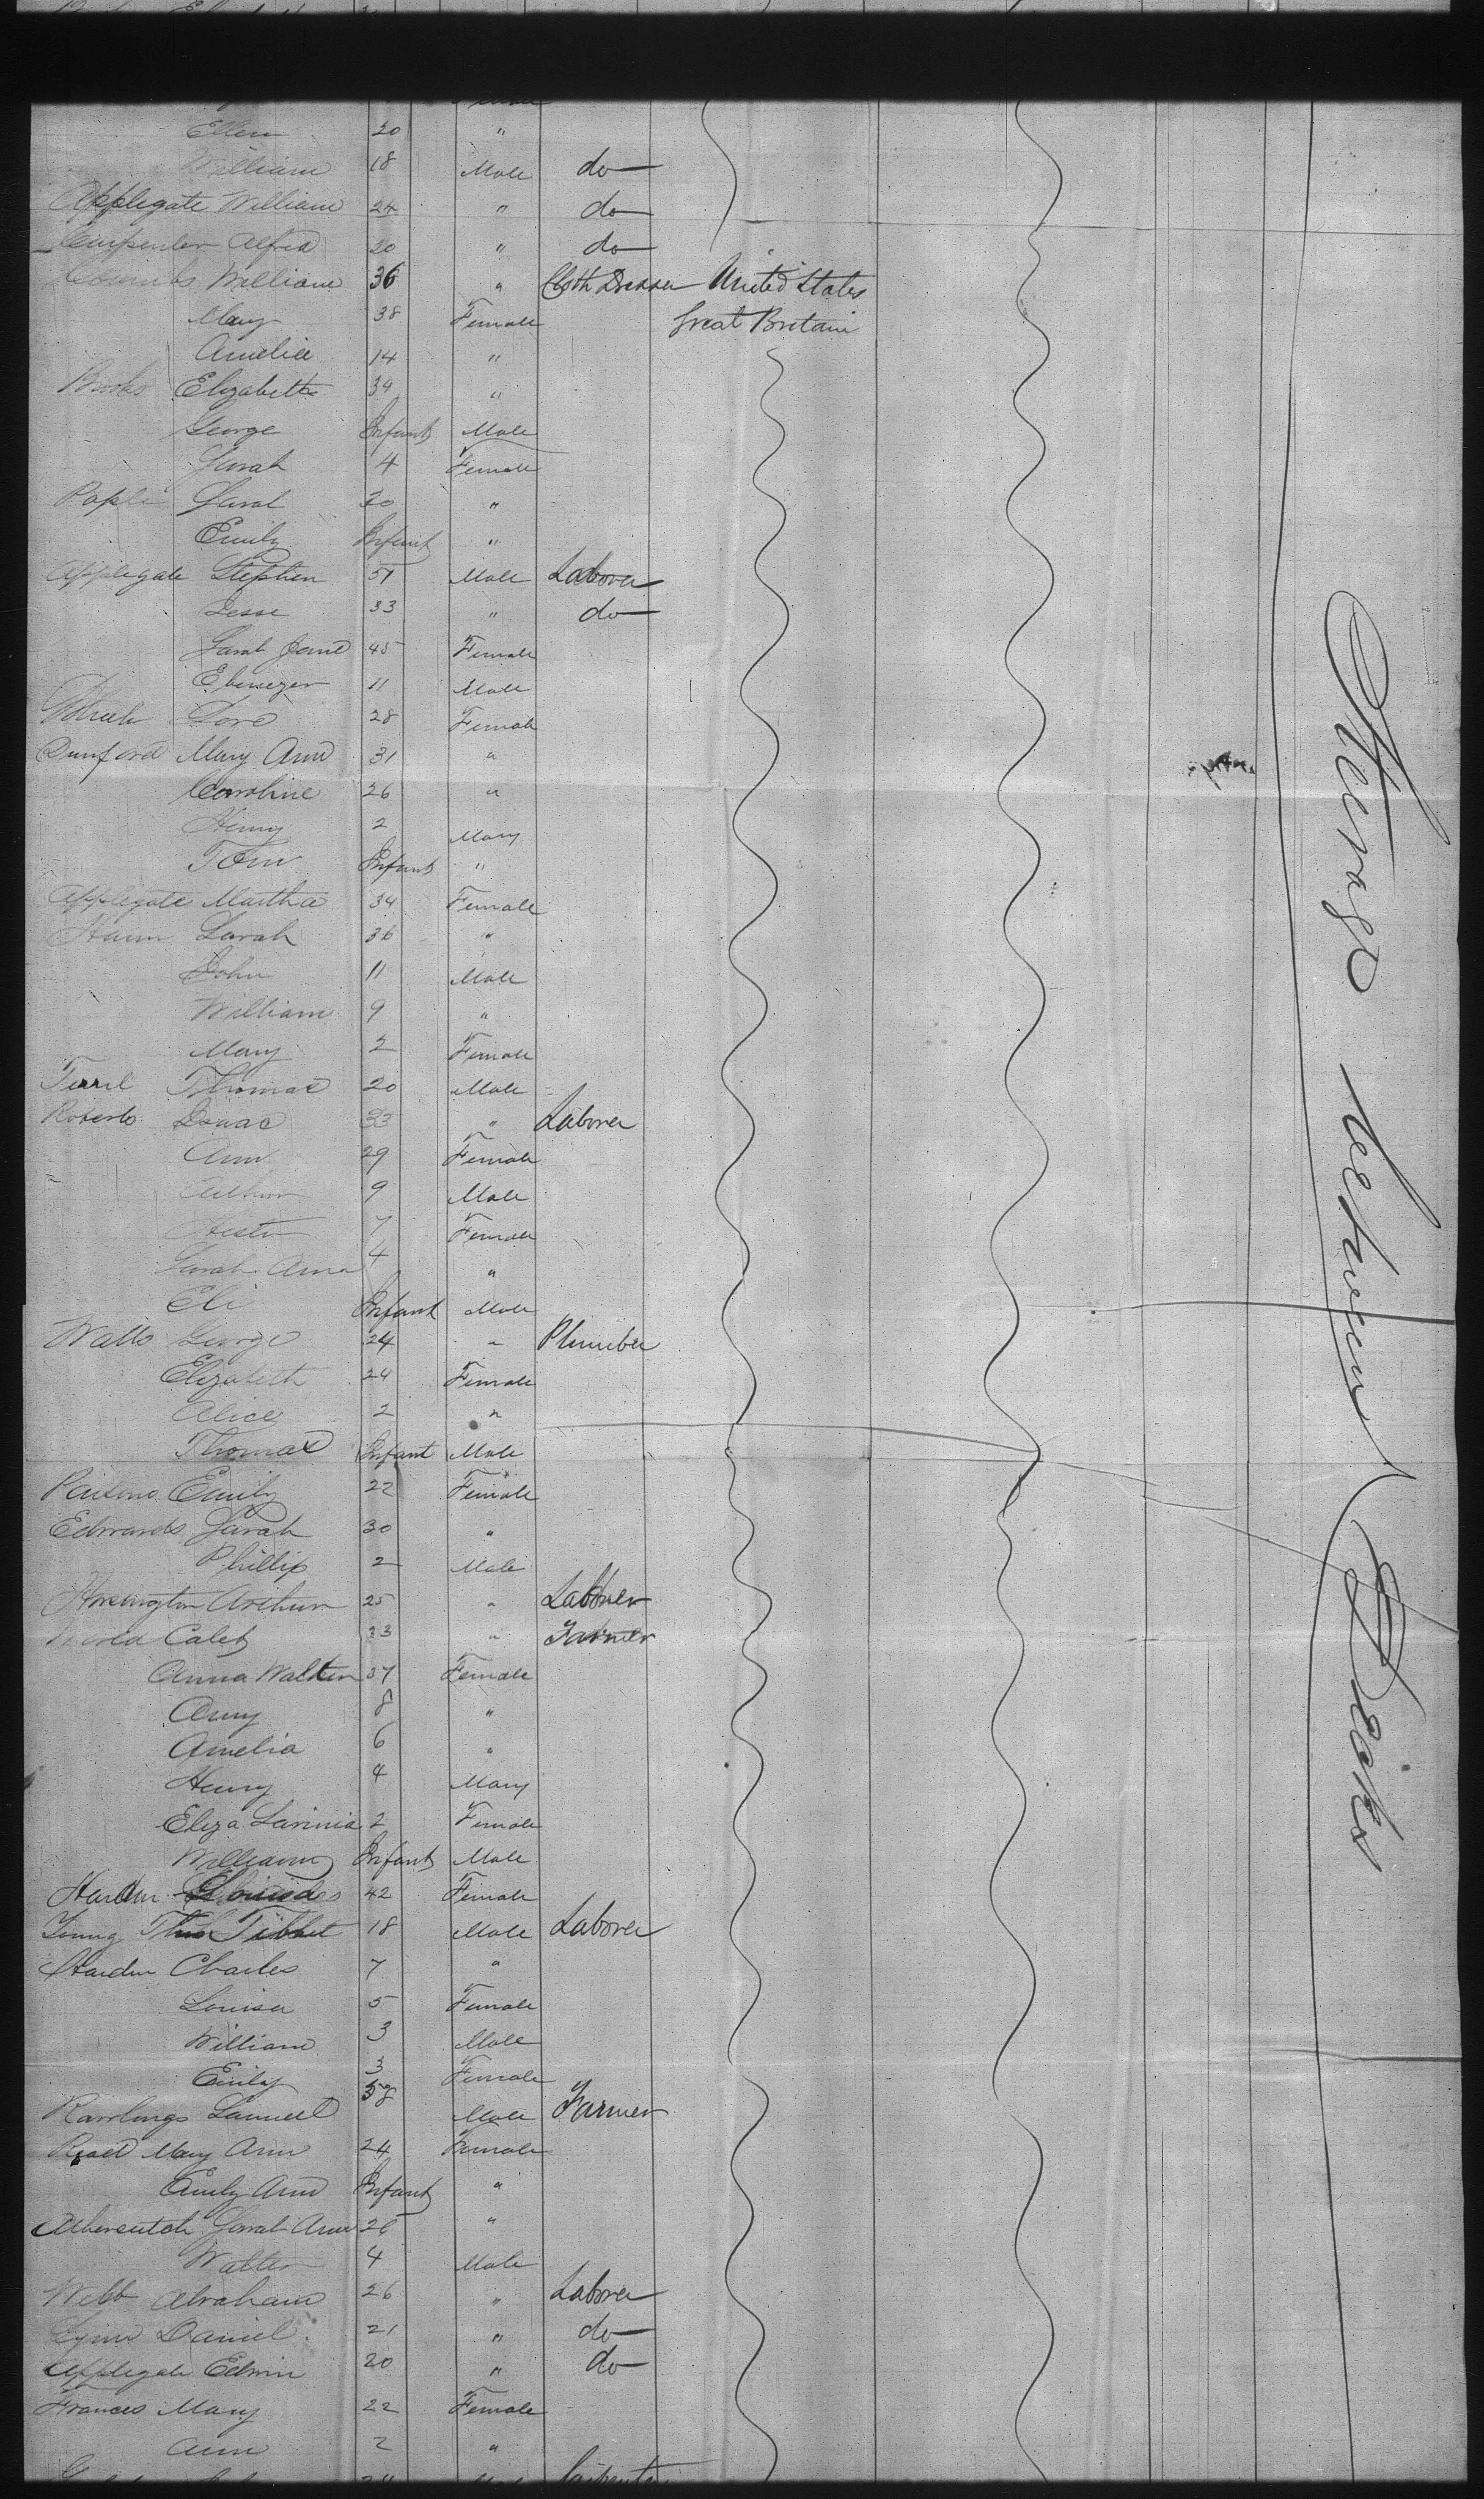 Ellen 20 "
William 18 Male do
Applegate William 24 " do
Carpenter Alfred 20 " do
William 36 " Cloth Dresser United States
Mary 38 Female Great Britain
Amelia 14 "
Brooks Elizabeth 34 "
George Infant Male
Sarah 4 Female
Sarah 20 "
Emily Infant "
Applegate Stephen 51 Male Laborer
Jesse 33 " do
Sarah Jane 45 Female
Ebenezer 11 Male
28 Female
Dunford Mary Ann 31 "
Caroline 26 "
Henry 2 Mary
Tom Infant "
Applegate Martha 34 Female
Hann Sarah 36 "
John 11 Male
William 9 "
Mary 2 Female
Thomas 20 Male
Roberts Isaac 33 " Laborer
Ann 29 Female
9 Male
Hester 7 Female
Sarah Anna 4 "
Eli Infant Male
Watts George 24 " Plumber
Elizabeth 24 Female
Alice 2 "
Thomas Infant Male
Parsons Emily 22 Female
Edwards Sarah 30 "
Phillip 2 Male
Arthur 25 " Laborer
Caleb 33 " Farmer
Anna Walten 37 Female
Amy 8 "
Amelia 6 "
Henry 4 Mary
Eliza Lavinia 2 Female
William Infant Male
42 Female
Young Thos Tibbet 18 Male Laborer
Charles 7 "
Louisa 5 Female
William 3 Male
Emily 3 Female
Rawlings Samuel 58 Male Farmer
Mary Ann 24 Female
Emily Ann Infant "
Sarah Ann 26 "
Walter 4 Male
Webb Abraham 26 " Laborer
Daniel 21 " do
Applegate Edwin 20 " do
Frances Mary 22 Female
Ann 2 "
Steerage between Decks